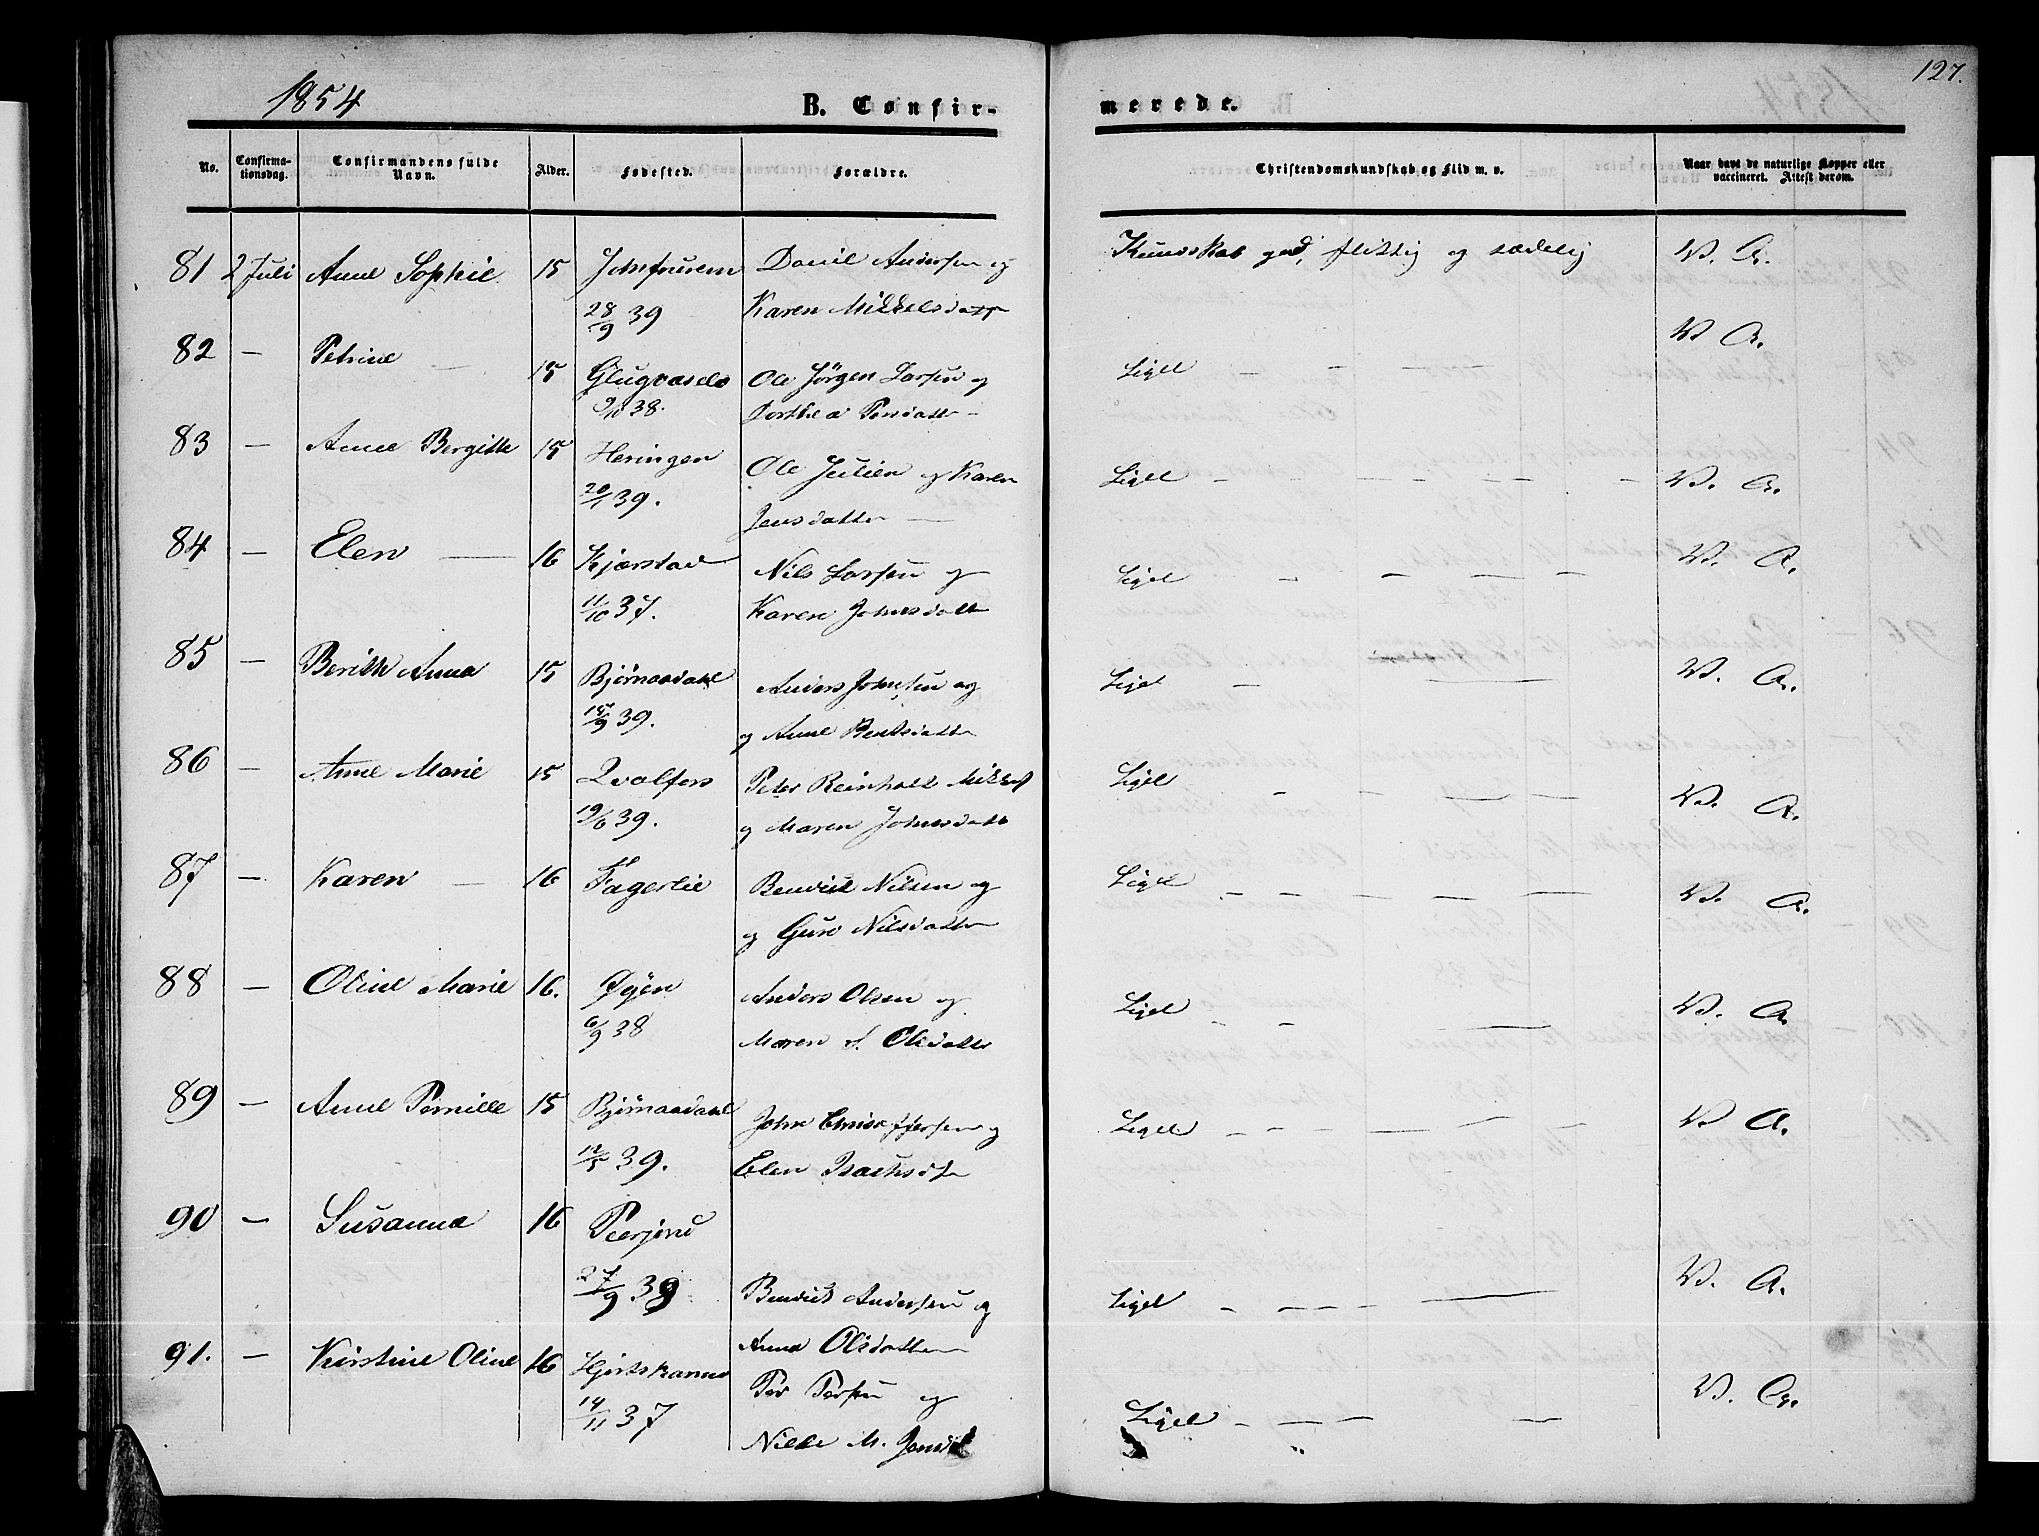 1854
B. Confir-
merede.
127.
No.
Confirma-
tionsdag.
Confirmandens fulde
Navn.
Alder.
Fødested.
Forældre.
Christendomskundskab og Flid m. v.
Naar havt de naturlige Kopper eller
vaccineret. Attest derom.
81 2 Juli Anne Sophie 15 Daniel Andersen og Kundskab god, flittig og sædelig V. A.
28/9 39 Karen Mikkelsdatr
82 — Petrine — 15 Glugvasels Ole Jörgen Larsen og Ligel — — — — V A.
9/10 38. Dorthea Persdatter
83 — Anne Bergitte 15 Heringen Ole Julien og Karen Ligel — — — — V. A.
20/1 39. Jensdatter —
84 — Elen — 16 Kjærstad Nils Larsen og Ligel — — — — V. A.
11/10 37. Karen Johnsdatt
85 — Berith Anna 15 Bjørnaadal Anders Johnsen og Ligel — — V. A.
15/9 39. og Anne Bentsdatter
86 — Anne Marie 15 Qvalfors Peter Reinholt Mikkels Ligel — — — — V. A.
19/6 39. og Maren Johnsdatt
87 — Karen — 16 Fagerlie Bendick Nilsen og Ligel — — — — V. A.
og Guro Nilsdatter
88 — Oline Marie 16. Øyen Anders Olsen og Ligel — — — V. A.
6/9 38 Maren Olsdatter
89 — Anne Pernille 15 Bjørnaadal John Christoffersen og Ligel — — — — V. A.
12/5 39. Elen Isachsdr
90 — Susanna 16
27/9 39 Bendick Andersen og Ligel — — — V. A.
Anna Olsdatter
91. — Kirstine Oline 16 Per Persen og Ligel — — — V. A.
14/11 37 Nille M. Jensd